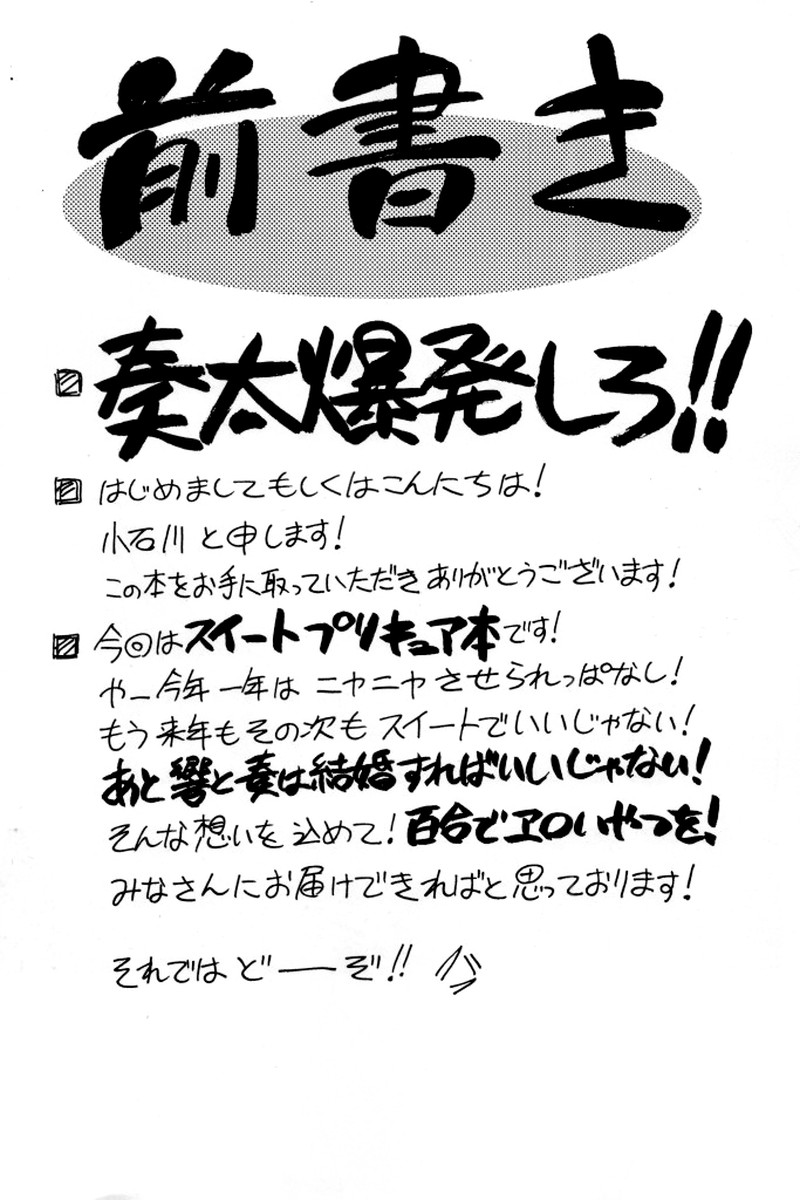 前書き
奏太爆発しろ!!
はじめましてもしくはこんにちは!
小石川と申します!
この本をお手に取っていただきありがとうございます!
今回はスイートプリキュア本です!
や－今年一年は ニヤニヤ させられっぱなし!
もう来年もその次も スイートでいいじゃない!
あと響と奏は結婚すればいいじゃない!
そんな想いを 込めて! 百合でエロいやつを!
みなさんにお届けできればと思っております!
それでは どーぞ!!